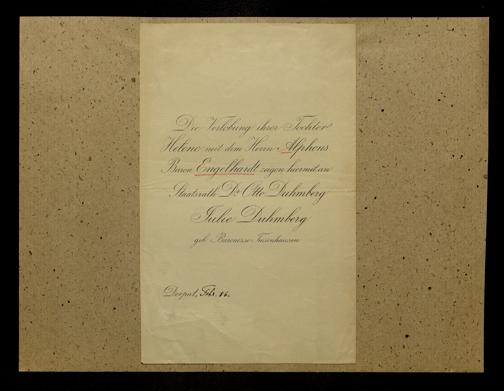 Die Verlobung ihrer Tochter
Helene mit dem Herrn Alphons
Baron Engelhardt zeigen hiermit an
Staatsrath Dr Otto Duhmberg
Julie Duhmberg
geb. Baronesse Tiesenhausen
Dorpat, Febr.